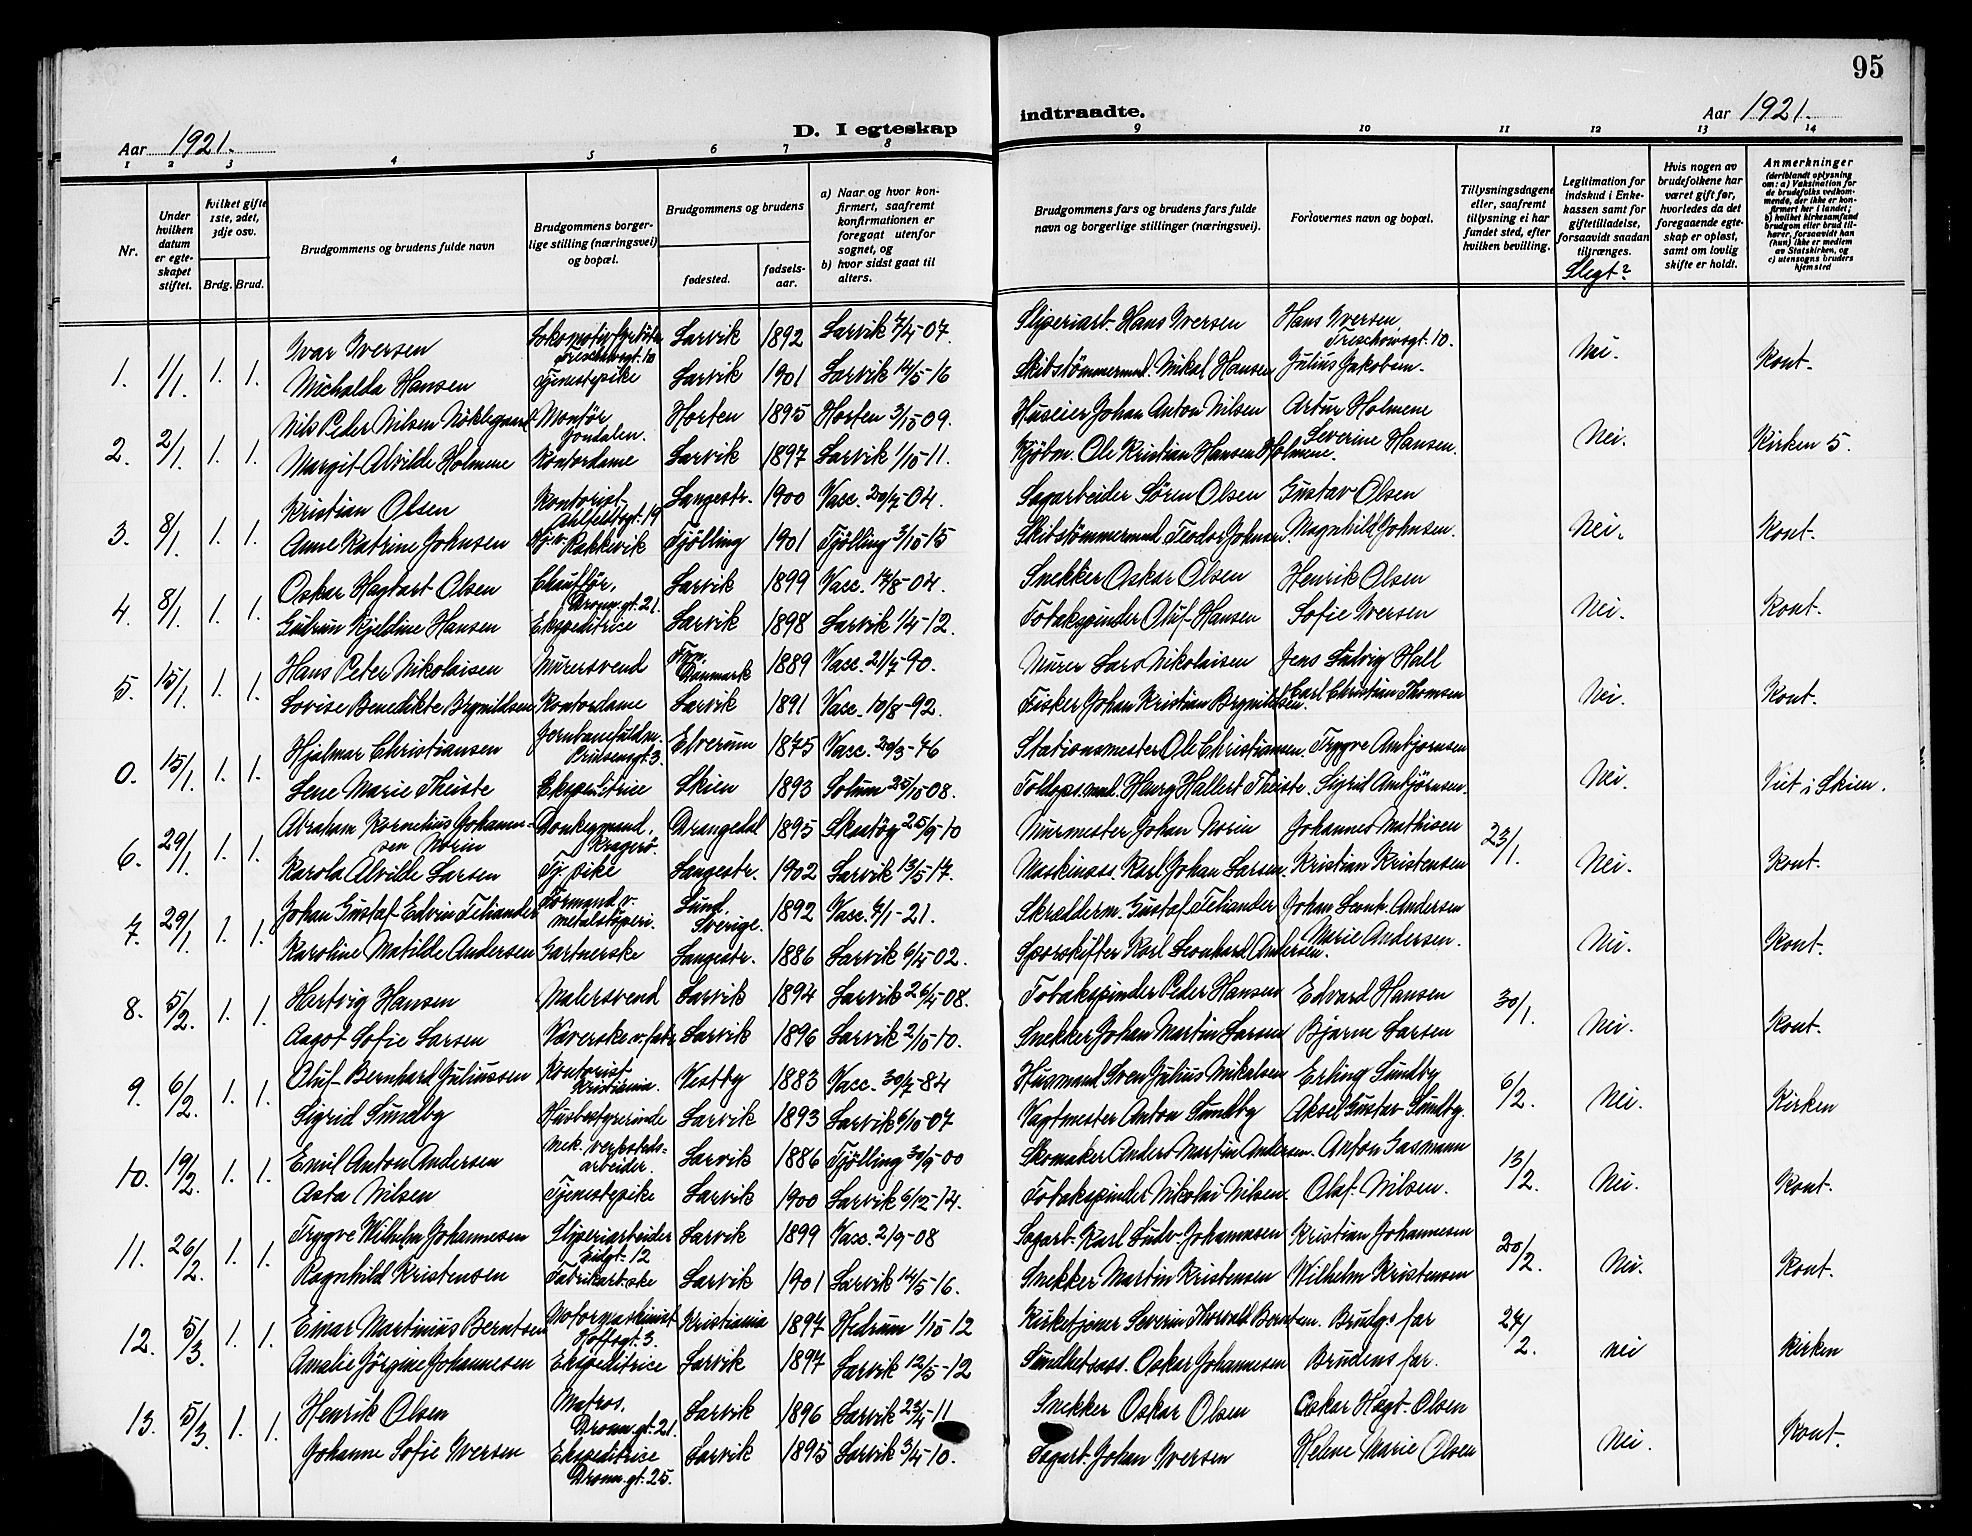 95
Aar 1921.
D. I egteskap
indtraadte.
Aar 1921.
1 2 3 4 5 6 7 8 9 10 11 12 13 14
Nr.
Under hvilken datum er egteskapet stiftet.
hvilket gifte 1ste, 2det, 3dje osv.
Brdg. Brud.
Brudgommens og brudens fulde navn
Brudgommens borgerlige stilling (næringsvei) og bopæl.
Brudgommens og brudens
fødested. fødselsaar.
a) Naar og hvor konfirmert, saafremt konfirmationen er foregaat utenfor sognet, og
b) hvor sidst gaat til alters.
Brudgommens fars og brudens fars fulde navn og borgerlige stillinger (næringsvei).
Forlovernes navn og bopæl.
Tillysningsdagene eller, saafremt tillysning ei har fundet sted, efter hvilken bevilling.
Legitimation for indskud i Enkekassen samt for giftetilladelse, forsaavidt saadan tiltrænges.
Slegt?
Hvis nogen av brudefolkene har været gift før, hvorledes da det foregaaende egteskap er opløst, samt om lovlig skifte er holdt.
Anmerkninger (deriblandt oplysning om: a) Vaksination for de brudefolks vedkommende, der ikke er konfirmert her i landet; b) hvilket kirkesamfund brudgom eller brud tilhører, forsaavidt han (hun) ikke er medlem av Statskirken, og c) utensogns bruders hjemsted
1. 1/1 1. 1. Ivar Iversen Lokomotivfyrböter Treschowsgt. 10 Larvik 1892 Larvik 7/4-07. Sliperiarb. Hans Iversen Hans Iversen, Treschowsgt. 10. Nei. Kont.
Michalda Hansen Tjenestepike Larvik 1901 Larvik 14/5-16 Skibstømmermand. Mikal Hansen Julius Jakobsen.
2. 2/1 1. 1. Nils Peder Nilsen Nöklegaard Montör Jondalen. Horten 1895 Horten 3/10 09. Huseier Johan Anton Nilsen Artur Holmene Nei. Kirken 5.
Margit Alvilde Holmene Kontordame Larvik 1897 Larvik 1/10-11. Kjöbm. Ole Kristian Hansen Holmene. Severine Hansen.
3. 8/1 1. 1. Kristian Olsen Kontorist Ahlefeldtsgt. 19 Langestr. 1900 Vacc. 20/7-04. Sagarbeider Sören Olsen Gustav Olsen Nei. Kont.
Anne Katrine Johnsen Hj.v. Rakkevik Tjölling 1901 Tjölling 3/10-15 Skibstömmermand Teodor Johnsen. Magnhild Johnsen.
4. 8/1 1. 1. Oskar Hagbart Olsen Chauffør, Dronn.gt. 21. Larvik 1899 Vacc. 17/8-04. Snekker Oskar Olsen Henrik Olsen Nei. Kont.
Gudrun Kjeldine Hansen Ekspeditrice Larvik 1898 Larvik 1/4-12. Tobakspinder Oluf Hansen Sofie Iversen
5. 15/1 1. 1. Hans Peter Nikolaisen Murersvend Fyn, Danmark 1889 Vacc. 21/7-90. Murer Lars Nikolaisen Jens Ludvig Hall Nei. Kont.
Lovise Benedikte Brynildsen Kontordame Larvik 1891 Vacc. 10/8-92. Fisker Johan Kristian Brynildsen. Carl Christian Thomsen
0. 15/1 1. 1. Hjalmar Christiansen Jernbanefuldm. Prinsensgt. 3. Elverum 1875 Vacc. 20/3-76 Stationsmester Ole Christiansen. Trygve Anbjörnsen Nei. Viet i Skien.
Lene Marie Theiste Ekspeditrice Skien 1893 Solum 25/10 08. Toldops.mand. Henry Hallert Theiste. Sigrid Anbjörnsen.
6. 29/1 1. 1. Abraham Kornelius Johannessen Norin Donkeymand, Kragerö. Drangedal 1895 Skaatöy 25/9-10 Murmester Johan Norin Johannes Mathisen 23/1. Nei. Kont.
Karola Alvilde Larsen Tj. pike Langestr. 1902 Larvik 13/5-17. Maskinass. Karl Johan Larsen Kristian Kristensen
7. 29/1 1. 1. Johan Gustaf Edvin Teliander Formand v. metalstöperi. Lund, Sverige. 1892 Vacc. 4/1-21. Skrædderm. Gustaf Teliander Johan Leonh. Andersen Nei. Kont.
Karoline Matilde Andersen Gartnerske Langestr. 1886 Larvik 6/4-02. Sporskifter Karl Leonhard Andersen. Marie Andersen.
8. 5/2. 1. 1. Hartvig Hansen Malersvend Larvik 1894 Larvik 26/4-08. Tobakspinder Peder Hansen Edvard Hansen 30/1. Nei. Kont.
Aagot Sofie Larsen Væverske v. fabr. Larvik 1896 Larvik 2/10-10. Snekker Johan Martin Larsen Bjarne Larsen
9. 6/2. 1. 1. Oluf Bernhard Juliussen Kontorist Kristiania. Vestby 1883 Vacc. 30/7-84 Husmand Sven Julius Mikalsen Erling Sundby 6/2. Nei. Kirken
Sigrid Sundby Husbestyrerinde Larvik 1893 Larvik 6/10-07 Vagtmester Anton Sundby Aksel Gustav Sundby.
10. 19/2. 1. 1. Emil Anton Andersen Mek. verkstedsarbeider. Larvik 1886 Tjölling 30/9-00 Skomaker Anders Martin Andersen. Anton Gasmann 13/2. Nei. Kont.
Asta Nilsen Tjenestepike Larvik 1900 Larvik 6/12-14. Tobakspinder Nikolai Nilsen. Olaf Nilsen.
11. 26/2. 1. 1. Trygve Wilhelm Johannesen Sliperiarbeider 12 Larvik 1899 Vacc. 2/9-08 Sagarb. Karl Ludv. Johannesen Kristian Johannesen 20/2. Nei. Kont.
Ragnhild Kristensen Fabrikarb.ske Larvik 1901 Larvik 14/5-16. Snekker Martin Kristensen Wilhelm Kristensen
12. 5/3. 1. 1. Einar Martinius Berntsen Motormaskinist Hoffsgt. 3. Kristiania 1897 Hedrum 1/10-12 Kirketjener Severin Thorvald Berntsen. Brudgs far 27/2. Nei Kirken
Amalie Jörgine Johannesen Ekspeditrice Larvik 1897 Larvik 12/5-12 Sundhetsass. Oskar Johannesen Brudens far.
13. 5/3. 1. 1. Henrik Olsen Matros, Dronn.gt. 21. Larvik 1896 Larvik 23/4-11 Snekker Oskar Olsen Oskar Hagb. Olsen Nei. Kont.
Johanne Sofie Iversen Ekspeditrice Dronn.gt. 25. Larvik 1895 Larvik 3/4-10. Sagarb. Johan Iversen Helene Marie Olsen